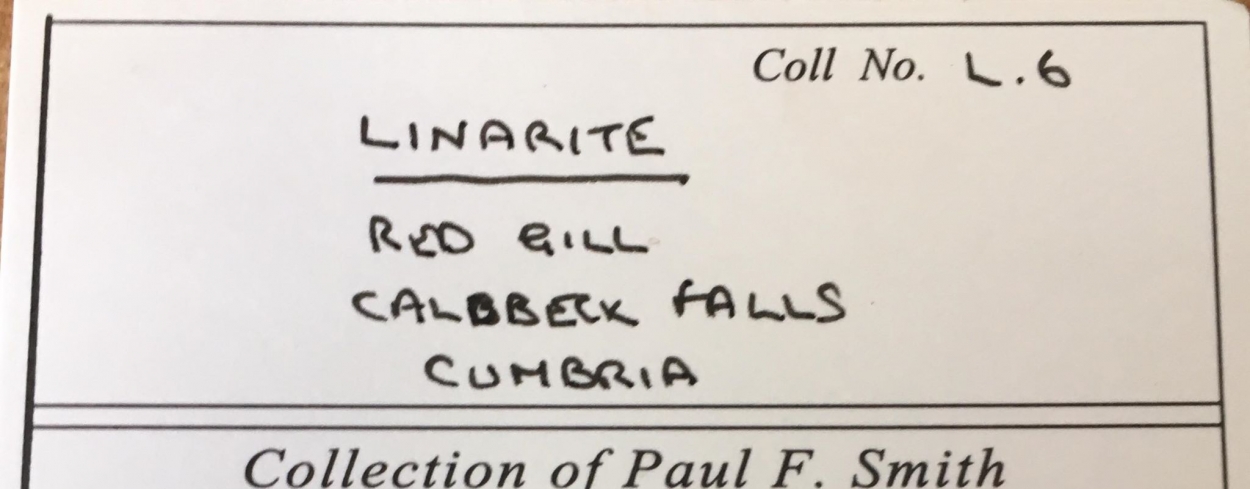 Coll No. L.6
LINARITE
RED GILL
CALBBECK FALLS
CUMBRIA
Collection of Paul F. Smith